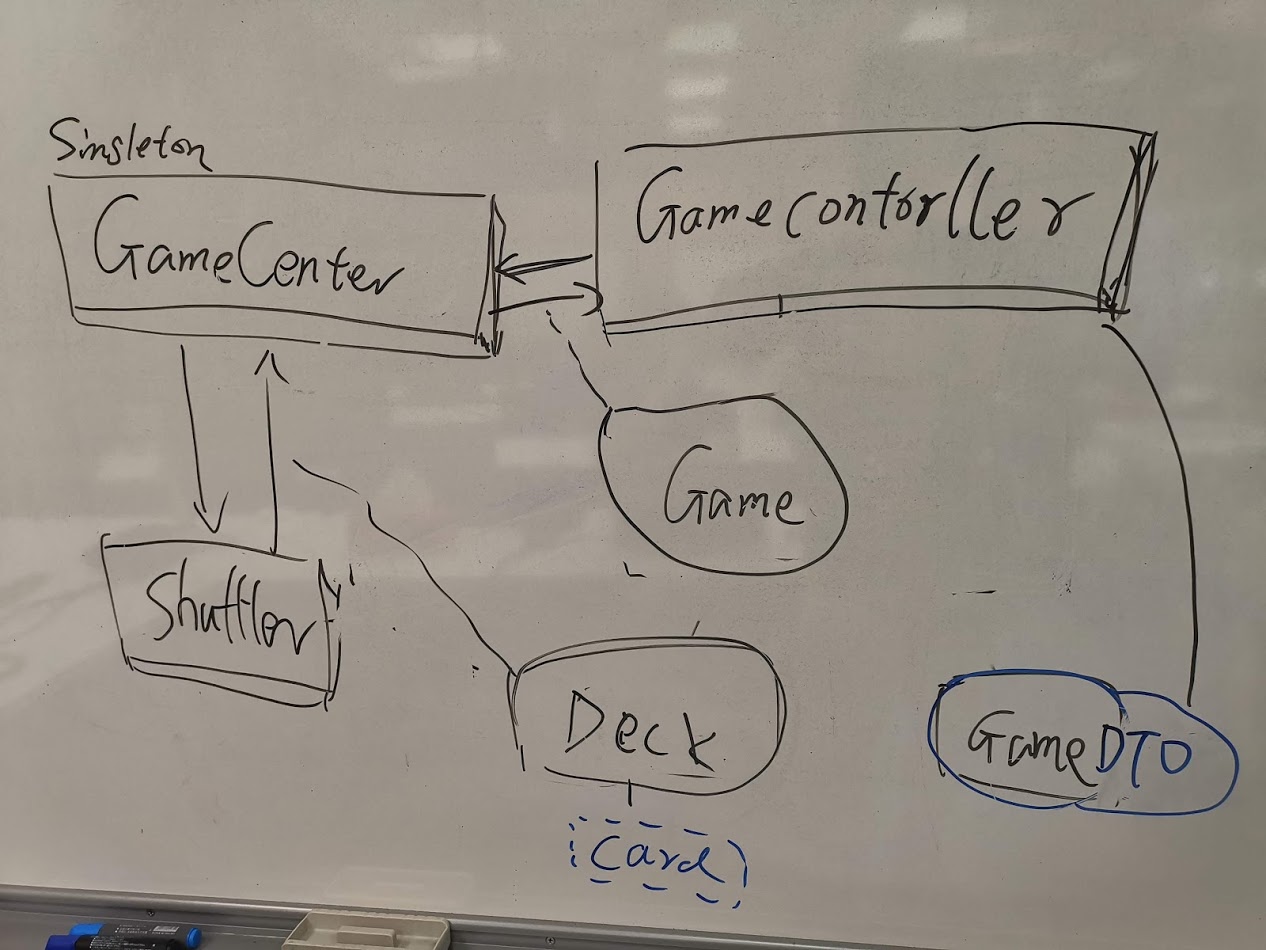 Singleton
GameCenter
Gamecontorller
Game
Shuffler
Deck
GameDTO
Card